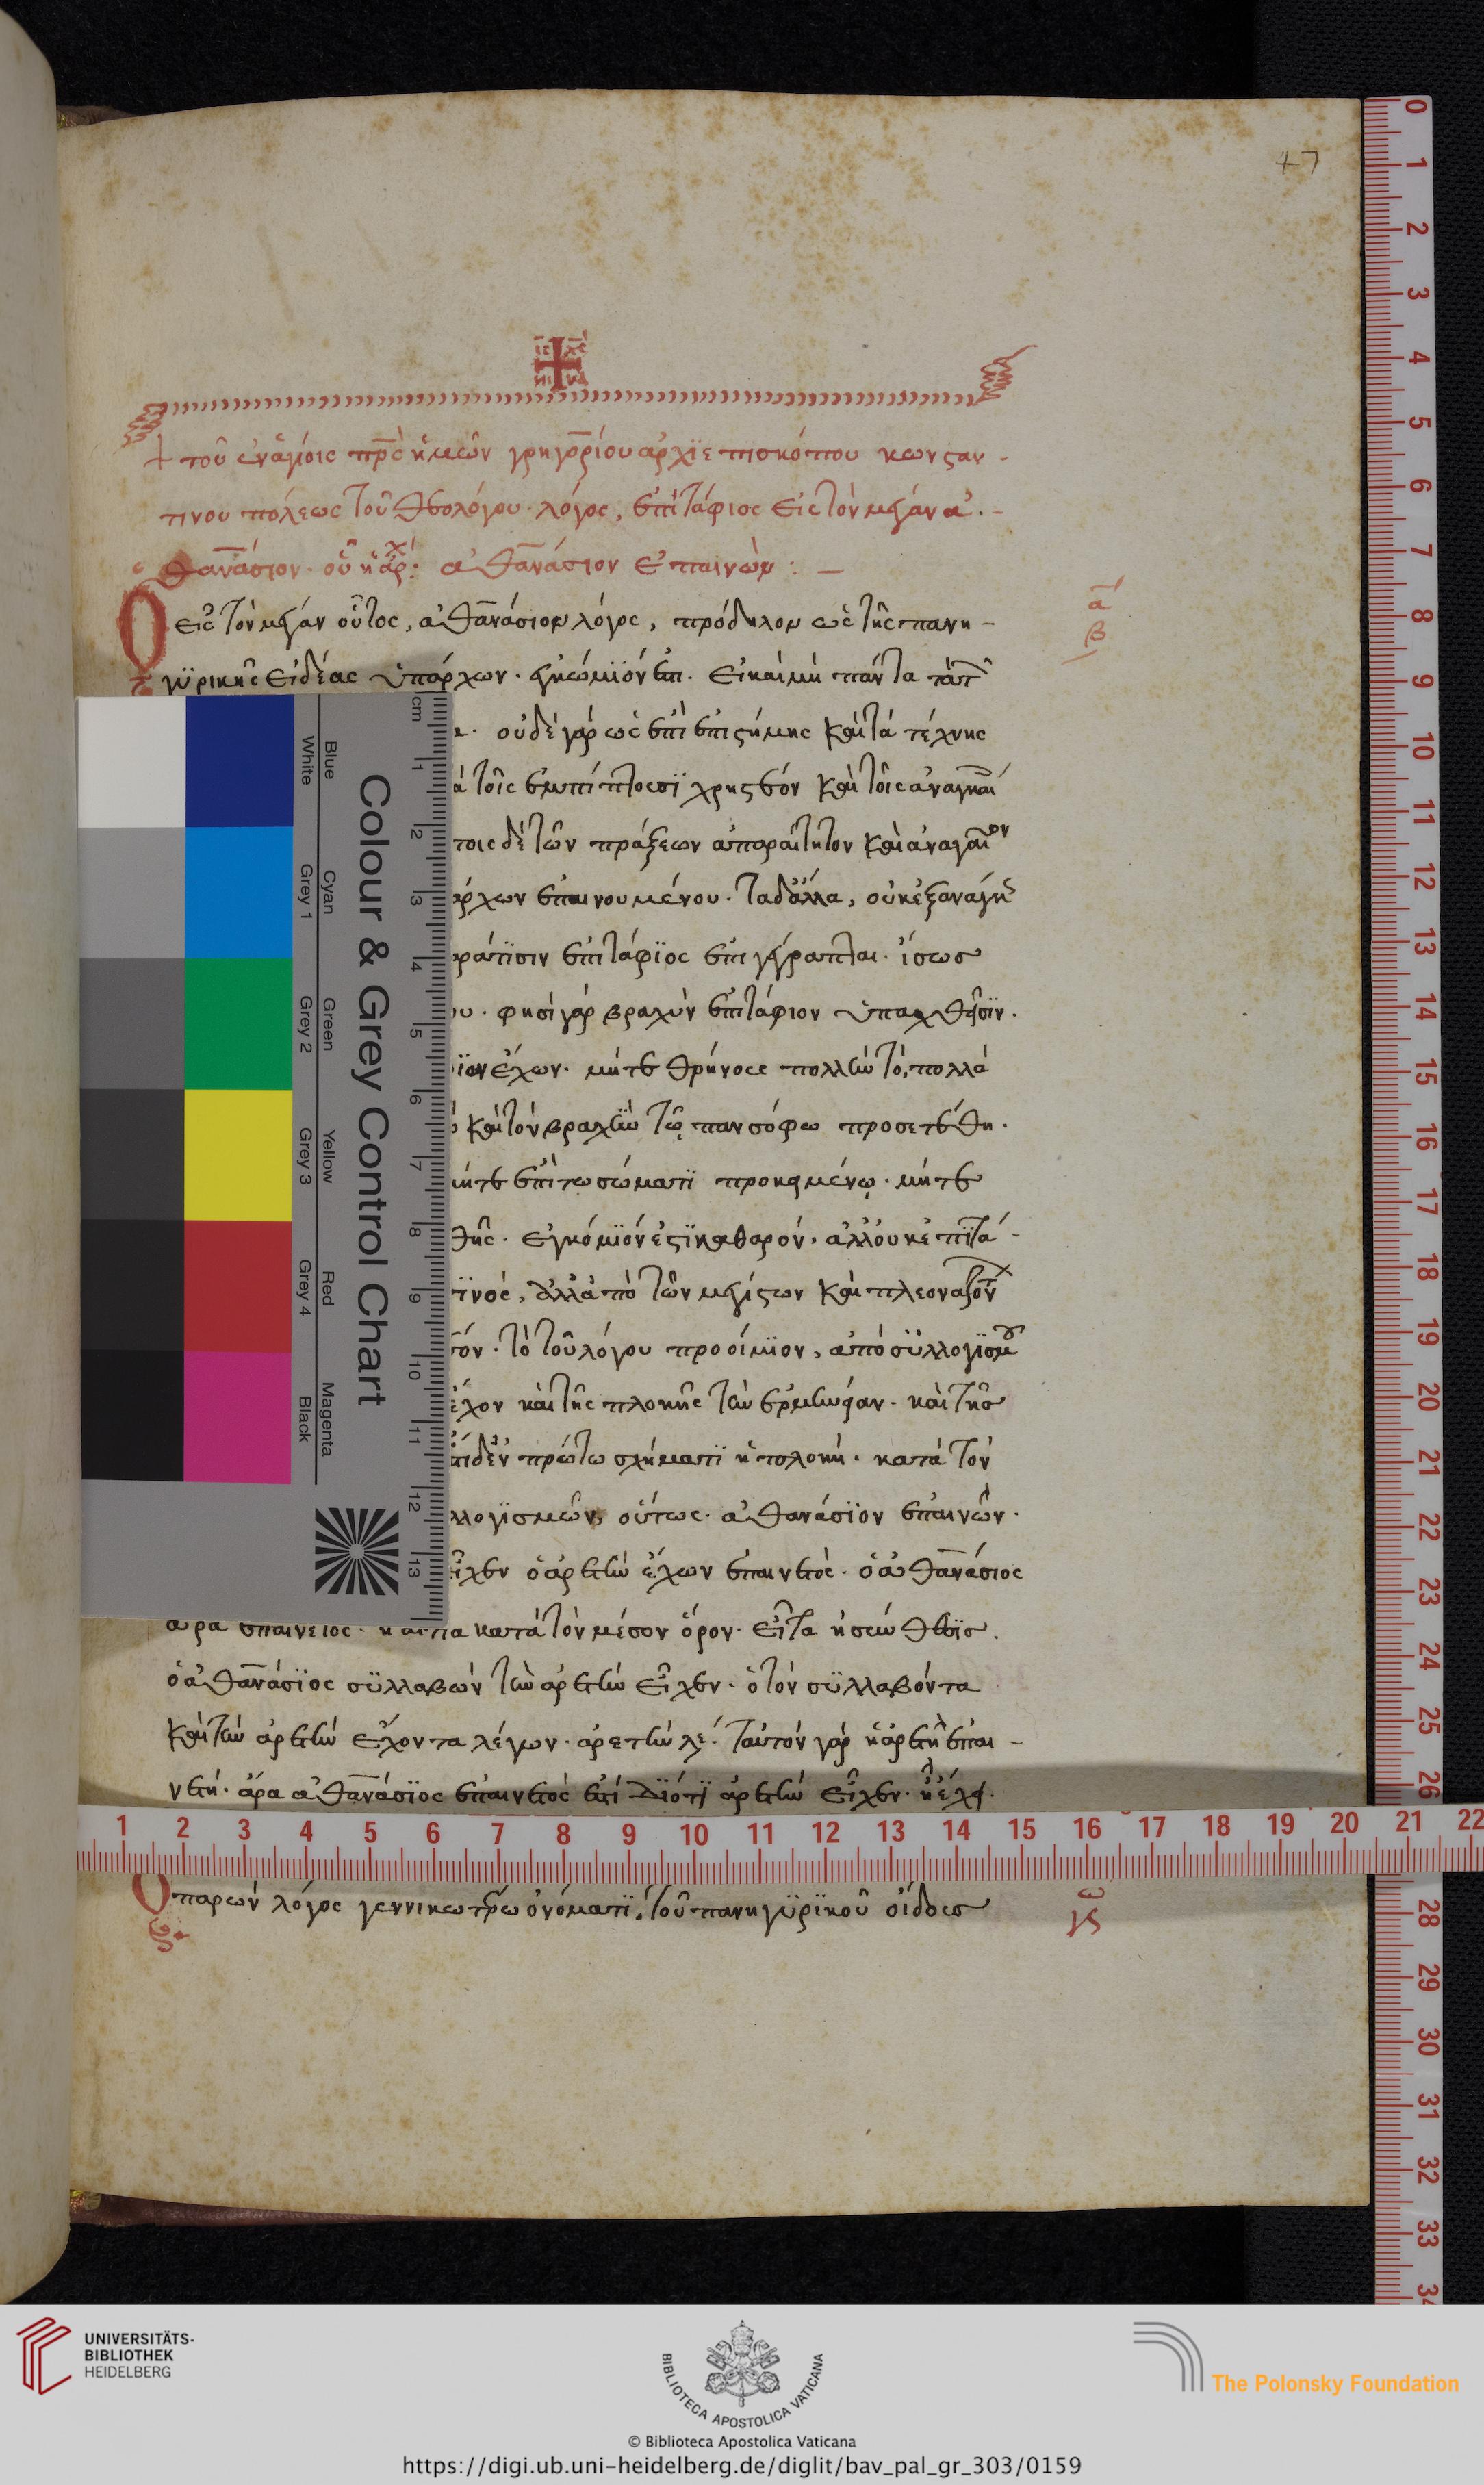 47
ις χς
νι κα
+ τοῦ ἐν ἁγίοις πρς ἡμῶν γρηγορίου ἀρχϊεπισκόπου κωνσταν -
τινουπόλεως τοῦ θεολόγου · λόγος, ἐπιτάφιος εἰς τὸν μέγαν ἀ . -
θανάσιον · οὗ ἡ ἀρχ: ἀθανάσιον ἐπαινῶν : —
Ὁ εἰς τὸν μέγαν οὗτος, ἀθανάσιον λόγος, πρόδηλον ὡς τῆς πανη -
α
β
γϋρικῆς εἰδέας ὑπάρχων . ἐγκώμϊόν ἐστι . εἰ καὶ μὴ πάντα τὰ τ
οὐδὲ γὰρ ὡς ἐπὶ ἐπιστήμης καὶ τὰ τέχνης
τοῖς ἐμπίπτουσϊ χρηστόν καὶ τοῖς ἀναγκαί
τοις δὲ τῶν πράξεων ἀπαραίτητον καὶ ἀναγκαῖον
ἐπαινουμένου . τὰ δ' ἄλλα, οὐκ ἐξανάγκης
ἐπιτάφϊος ἐπιγέγραπται . ἴσως
ου . φησὶ γὰρ βραχὺν ἐπιτάφιον
ἔχων . μήτε θρήνους πολλὼ τό, πολλὰ
καὶ τὸν βραχὺν τῷ πανσόφω προσετέθη .
μήτε ἐπὶ τω σώματϊ προκειμένῳ . μήτε
θῆς . ἐγκόμϊόν ἐστϊ καθαρόν . ἀλλ' οὐκ ἐπϊτά -
ἀλλ' ἀπὸ τῶν μεγίστων καὶ πλεοναζόντ
τὸ τοῦ λόγου προοίμϊον, ἀπὸ σϋλλογϊσμοῦ
ἔχον καὶ τῆς πλοκῆς τὴν ἑρμηνείαν . καὶ τῆς
ἐστὶ δ' ἐν πρώτω σχήματϊ ἡ πλοκή . κατὰ τὸν
λλογϊσμῶν, οὕτως . ἀθανάσϊον ἐπαινῶν .
εἶχεν ὁ ἀρετὴν ἔχων ἐπαινετός . ὁ ἀθανάσιος
ἄρα ἐπαινετός . κατὰ τὸν μέσον ὅρον . εἶτα ἡ σύνθεσϊς .
ὁ ἀθανάσϊος σϋλλαβὼν τὴν ἀρετὴν εἶχεν . ὁ τὸν σϋλλαβόντα
καὶ τὴν ἀρετὴν ἔχοντα λέγων . ἀρετὴν λέ . ταὐτὸν γὰρ ἡ ἀρετὴ ἐπαι -
νετή . ἄρα ἀθανάσϊος ἐπαινετὸς ἐστὶ δϊότϊ ἀρετὴν εἶχεν .
Ὁ παρὼν λόγος γεννικωτρω ὀνόματϊ, τοῦ πανηγϋρϊκοῦ εἴδους
Colour & Grey Control Chart
Blue Cyan Green Yellow Red Magenta
White Grey 1 Grey 2 Grey 3 Grey 4 Black
cm 1 2 3 4 5 6 7 8 9 10 11 12 13
0 1 2 3 4 5 6 7 8 9 10 11 12 13 14 15 16 17 18 19 20 21 22 23 24 25 26 28 29 30 31 32 33 34
1 2 3 4 5 6 7 8 9 10 11 12 13 14 15 16 17 18 19 20 21 22
UNIVERSITÄTS-
BIBLIOTHEK
HEIDELBERG
BIBLIOTECA APOSTOLICA VATICANA
© Biblioteca Apostolica Vaticana
The Polonsky Foundation
https://digi.ub.uni-heidelberg.de/diglit/bav_pal_gr_303/0159